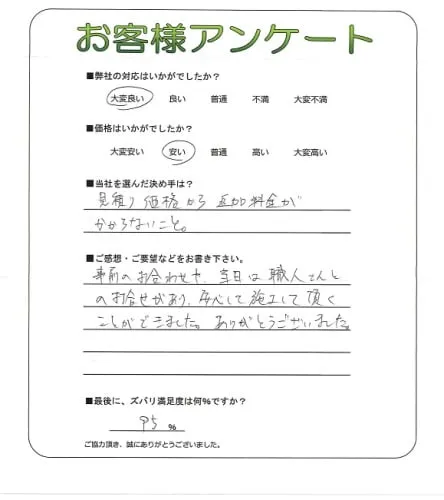 お客様アンケート
■弊社の対応はいかがでしたか?
大変良い 良い 普通 不満 大変不満
■価格はいかがでしたか?
大変安い 安い 普通 高い 大変高い
■当社を選んだ決め手は?
見積り価格から追加料金が
かからないこと。
■ご感想・ご要望などをお書き下さい。
事前のお合わせや、当日は職人さんと
のお合せがあり、安心して施工して頂く
ことができました。ありがとうございました。
■最後に、ズバリ満足度は何%ですか?
95 %
ご協力頂き、誠にありがとうございました。